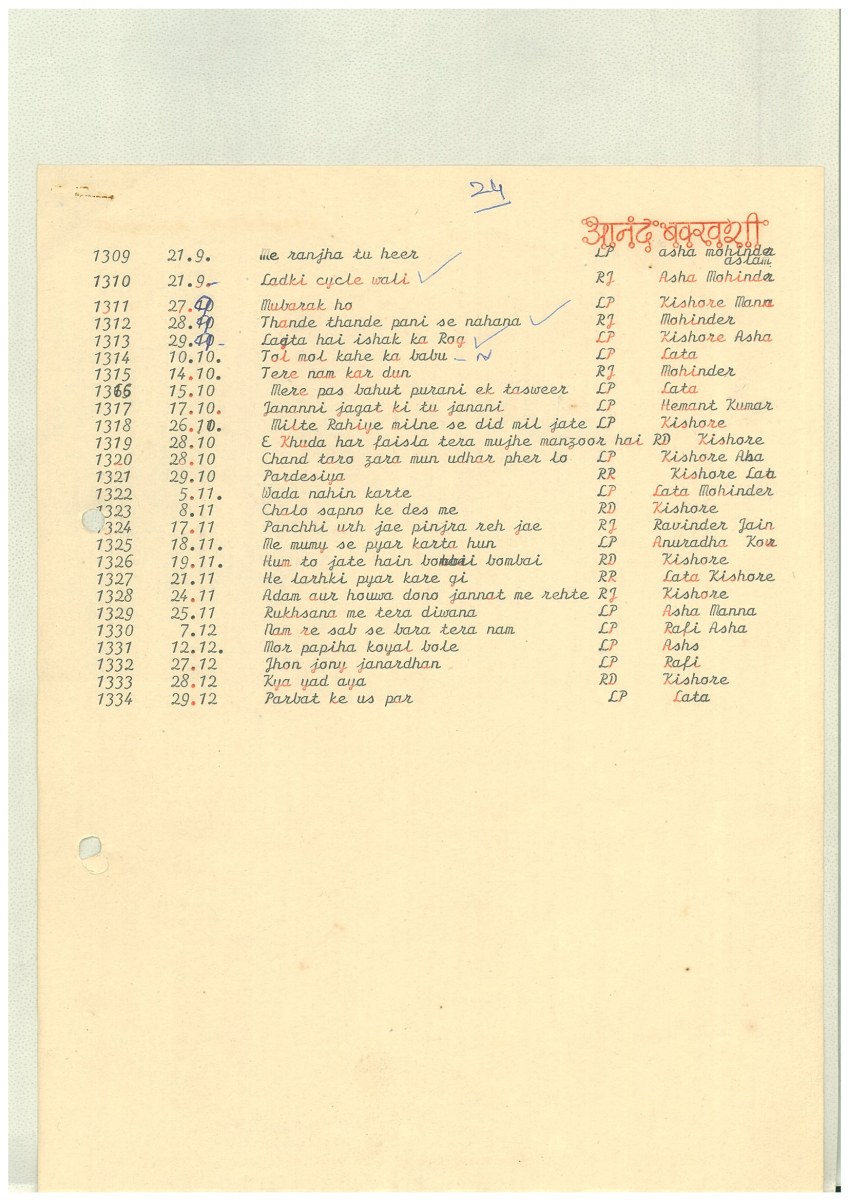 24
आनंद बक्खशी
1309 21.9. Me ranjha tu heer LP asha mohinder
aslam
1310 21.9.- Ladki cycle wali RJ Asha Mohinder
1311 27.9 Mubarak ho LP Kishore Manna
1312 28.9 Thande thande pani se nahana RJ Mohinder
1313 29.9- Lagta hai ishak ka Rog LP Kishore Asha
1314 10.10. Tol mol kahe ka babu - N LP Lata
1315 14.10. Tere nam kar dun RJ Mohinder
1316 15.10 Mere pas bahut purani ek tasweer LP Lata
1317 17.10. Jananni jagat ki tu janani LP Hemant Kumar
1318 26.10. Milte Rahiye milne se did mil jate LP Kishore
1319 28.10 E Khuda har faisla tera mujhe manzoor hai RD Kishore
1320 28.10 Chand taro zara mun udhar pher lo LP Kishore Asha
1321 29.10 Pardesiya RR Kishore Lata
1322 5.11. Wada nahin karte LP Lata Mohinder
1323 8.11 Chalo sapno ke des me RD Kishore
1324 17.11 Panchhi urh jae pinjra reh jae RJ Ravinder Jain
1325 18.11. Me mumy se pyar karta hun LP Anuradha Kour
1326 19.11. Hum to jate hain bombaii bombai RD Kishore
1327 21.11 He larhki pyar kare gi RR Lata Kishore
1328 24.11 Adam aur houwa dono jannat me rehte RJ Kishore
1329 25.11 Rukhsana me tera diwana LP Asha Manna
1330 7.12 Nam re sab se bara tera nam LP Rafi Asha
1331 12.12. Mor papiha koyal bole LP Ashs
1332 27.12 Jhon jony janardhan LP Rafi
1333 28.12 Kya yad aya RD Kishore
1334 29.12 Parbat ke us par LP Lata